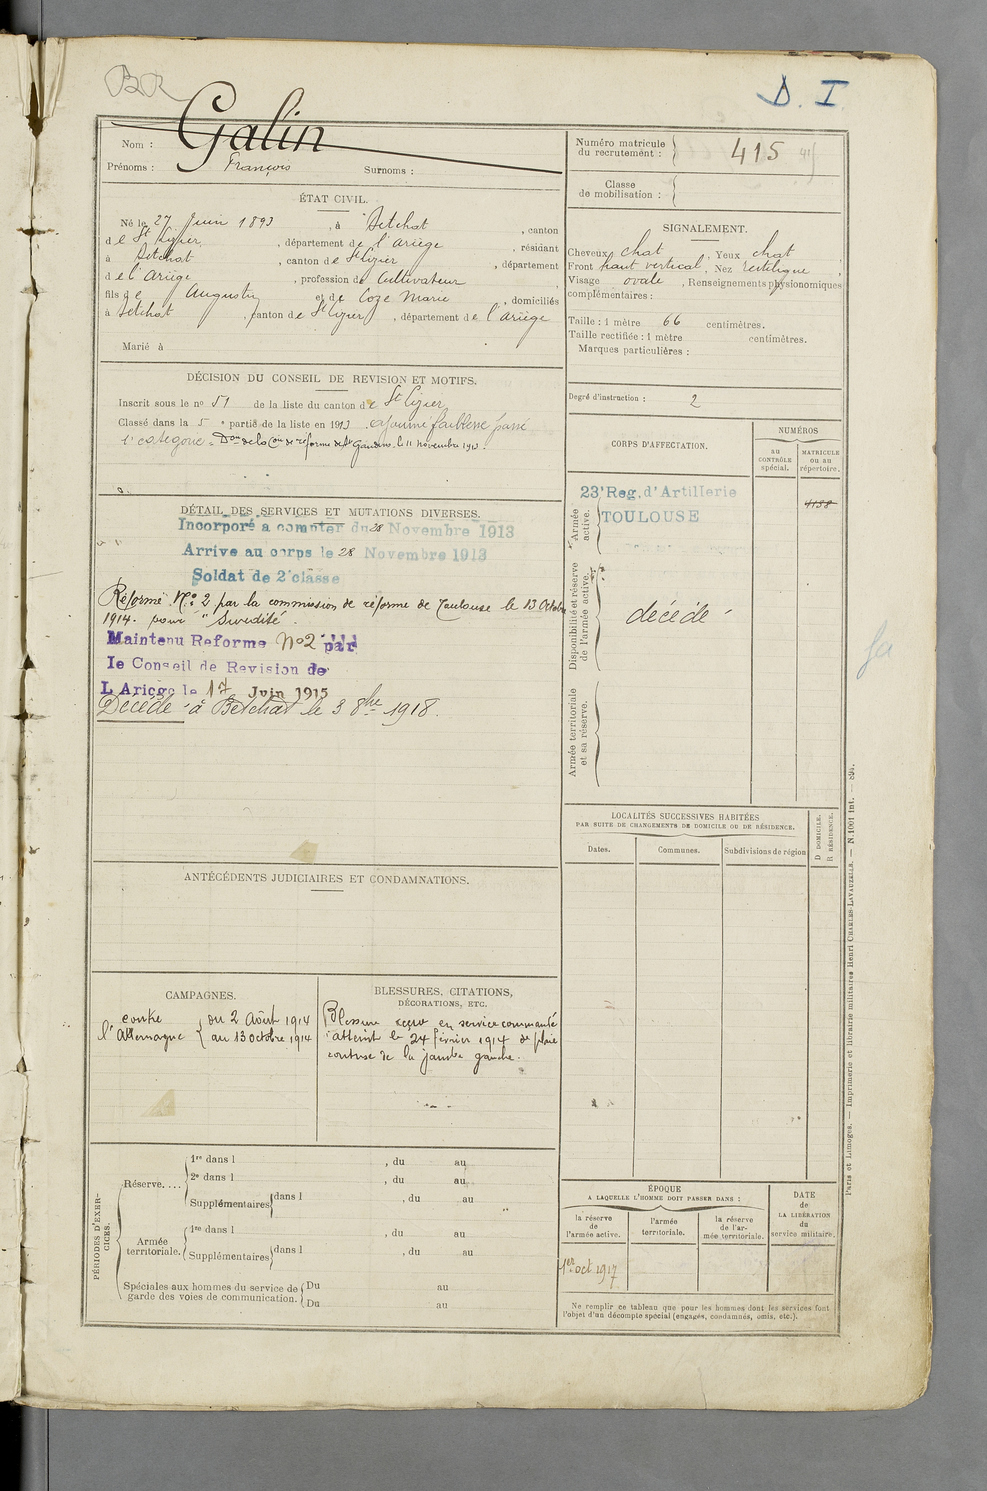 BR
D. I
Nom : Galin
Prénoms : François Surnoms :
Numéro matricule du recrutement : 415
Classe de mobilisation :
ÉTAT CIVIL.
Né le 27 Juin 1893, à Betchat, canton
de St Lizier, département de l'Ariège, résidant
à Betchat, canton de St Lizier, département
de l'Ariège, profession de Cultivateur
fils de Augustin et de Coze Marie, domiciliés
à Betchat, canton de St Lizier, département de l'Ariège
Marié à
SIGNALEMENT.
Cheveux chat, Yeux chat,
Front haut vertical, Nez rectiligne,
Visage ovale, Renseignements physionomiques
complémentaires :
Taille : 1 mètre 66 centimètres.
Taille rectifiée : 1 mètre centimètres.
Marques particulières :
DÉCISION DU CONSEIL DE REVISION ET MOTIFS.
Inscrit sous le no 51 de la liste du canton de St Lizier
Classé dans la 5e partie de la liste en 1913 ajourné faiblesse passé
1e catégorie = Don de la Con de réforme de St Gaudens le 11 novembre 1913.
Degré d'instruction : 2
CORPS D'AFFECTATION.
NUMÉROS
au CONTRÔLE spécial.
MATRICULE ou au répertoire.
Armée active.
23e Reg. d'Artillerie
TOULOUSE
4158
Disponibilité et réserve de l'armée active.
décédé
Armée territoriale et sa réserve.
DÉTAIL DES SERVICES ET MUTATIONS DIVERSES.
Incorporé à compter du 28 Novembre 1913
Arrivé au corps le 28 Novembre 1913
Soldat de 2e classe
Réformé No 2 par la commission de réforme de Toulouse le 13 Octobre
1914. pour "Surdité".
Maintenu Reforme No 2 par
le Conseil de Revision de
L Ariege le 17 Juin 1915
Décédé à Betchat le 3 8bre 1918.
LOCALITÉS SUCCESSIVES HABITÉES
PAR SUITE DE CHANGEMENTS DE DOMICILE OU DE RÉSIDENCE.
Dates.
Communes.
Subdivisions de région
D DOMICILE.
R RÉSIDENCE.
ANTÉCÉDENTS JUDICIAIRES ET CONDAMNATIONS.
CAMPAGNES.
contre l'Allemagne
du 2 Août 1914
au 13 octobre 1914
BLESSURES, CITATIONS,
DÉCORATIONS, ETC.
Blessure reçue en service commandé
atteint le 24 février 1914 de plaie
contuse de la jambe gauche.
PÉRIODES D'EXERCICES.
Réserve....
1re dans l , du au
2e dans l , du au
Supplémentaires dans l , du au
Armée territoriale.
1re dans l , du au
Supplémentaires dans l , du au
Spéciales aux hommes du service de garde des voies de communication.
Du au
Du au
ÉPOQUE
A LAQUELLE L'HOMME DOIT PASSER DANS :
la réserve de l'armée active.
l'armée territoriale.
la réserve de l'armée territoriale.
DATE de LA LIBÉRATION du service militaire.
1er oct 1917
Ne remplir ce tableau que pour les hommes dont les services font
l'objet d'un décompte spécial (engagés, condamnés, omis, etc.).
Paris et Limoges. — Imprimerie et librairie militaires Henri CHARLES-LAVAUZELLE. — N. 1001 int. — 894.